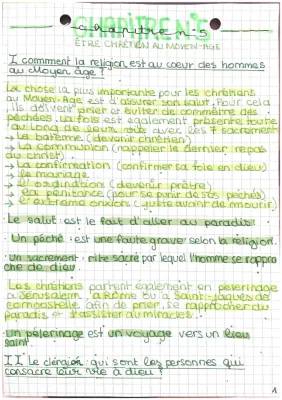 CHAPITRE N°5
chapitre n°5
ÊTRE CHRÉTIEN AU MOYEN-AGE
I comment la religion est au cœur des hommes
au Moyen âge ?
La chose la plus importante pour les chrétiens
au Moyen-Age est d'assurer son salut. Pour cela
ils doivent prier et éviter de commettre des
péchées. La fois est également présente toute
au long de leurs vie avec les 7 sacrement
→ Le baptême (devenir chrétien)
→ La communion (rappeler le dernier repas
du christ).
→ La confirmation (confirmer sa foie en dieu)
→ le mariage
→ l'ordination (devenir prêtre)
→ La pénitance (pour se punir de ses péchés)
→ l'extreme onxion (juste avant de mourir)
Le salut: est le fait d'aller au paradis
Un péché: est une faute grave selon la religion.
Un sacrement: rite sacré par lequel l'homme se rappro
che de dieu.
Les chrétiens partent également en pèlerinage
à Jérusalem, à Rome ou à Saint-Jacques de
Compostelle, afin de prier, se rapprocher du
paradis et d'assister au miracles.
un pèlerinage est un voyage vers un lieu
saint.
II Le clergé: qui sont les personnes qui
consacre leur vie à dieu ?
1